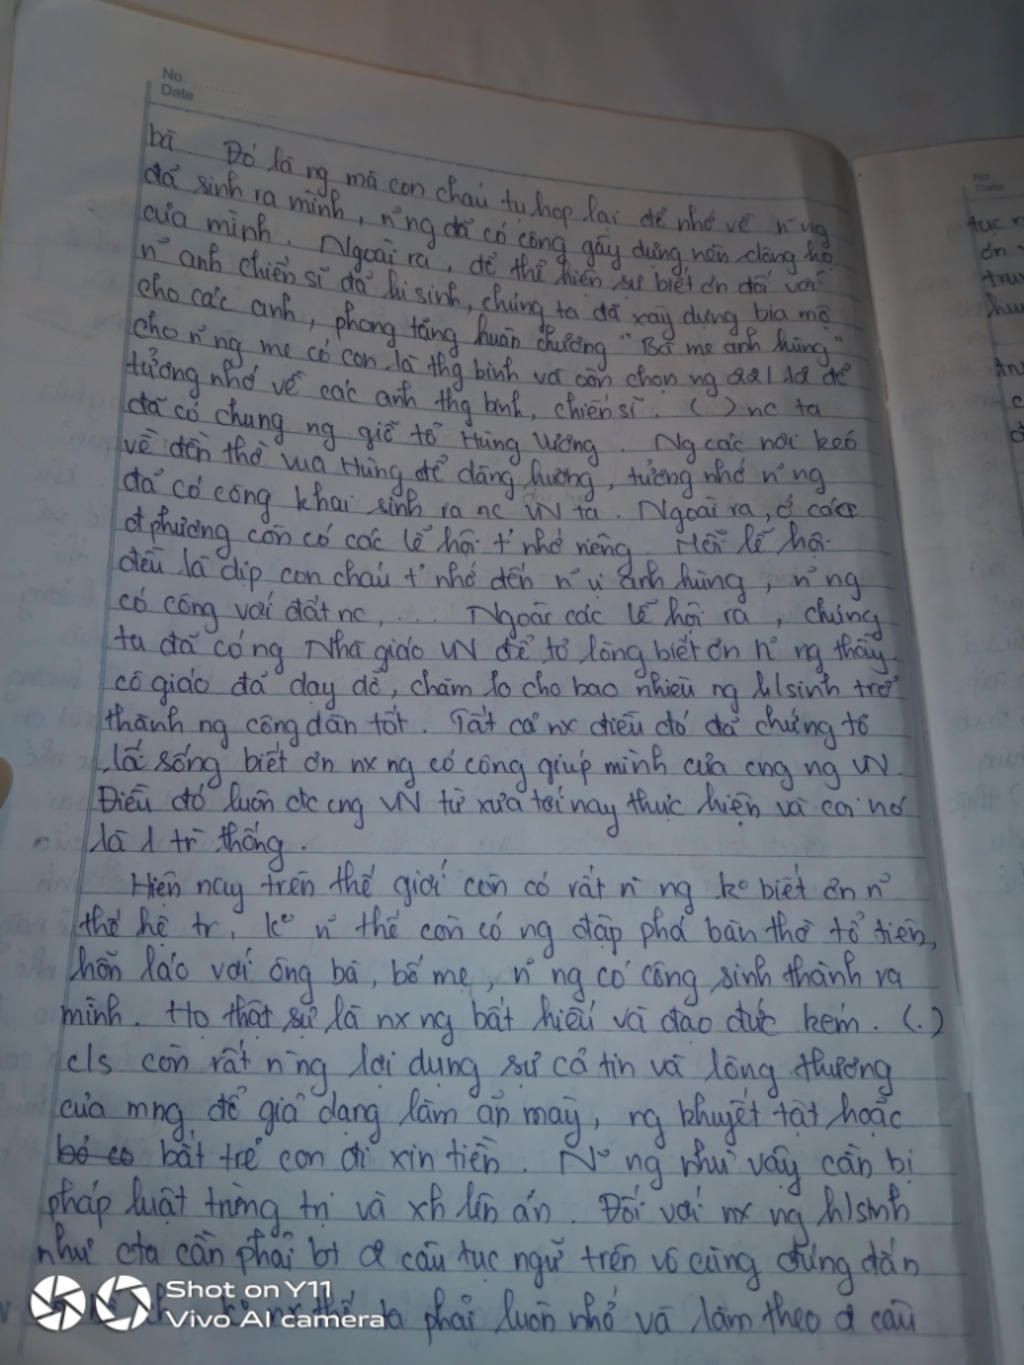 No.
Date
bà Đó là ng mà con cháu tụ họp lại để nhớ về n~ ng
đã sinh ra mình, n~ng đã có công gây dựng nên dòng họ
của mình. Ngoài ra, để thể hiện sự biết ơn đối với
n~ anh chiến sĩ đã hi sinh, chúng ta đã xây dựng bia mộ
cho các anh, phong tặng huân chương "Bà mẹ anh hùng"
cho n~ng mẹ có con là thg binh và còn chọn ng 22/12 để
tưởng nhớ về các anh thg binh, chiến sĩ. ( ) nc ta
đã có chung ng giỗ tổ Hùng Vương. Ng các nơi kéo
về đền thờ vua Hùng để dâng hương, tưởng nhớ n~ng
đã có công khai sinh ra nc VN ta. Ngoài ra, ở các
đphương còn có các lễ hội t' nhớ riêng. Mỗi lễ hội
đều là dịp con cháu t' nhớ đến n~ vị anh hùng, n~ng
có công với đất nc, .... Ngoài các lễ hội ra, chúng
ta đã có ng Nhà giáo VN để tỏ lòng biết ơn n~ ng thầy
cô giáo đã dạy dỗ, chăm lo cho bao nhiêu ng h/sinh trở
thành ng công dân tốt. Tất cả nx điều đó đã chứng tỏ
lối sống biết ơn nx ng có công giúp mình của cng ng VN.
Điều đó luôn đc cng VN từ xưa tới nay thực hiện và coi nó
là 1 tr` thống.
Hiện nay trên thế giới còn có rất n` ng k° biết ơn n~
thế hệ tr, k° n~ thế còn có ng đập phá bàn thờ tổ tiên,
hỗn láo với ông bà, bố mẹ, n~ ng có công sinh thành ra
mình. Họ thật sự là nx ng bất hiếu và đạo đức kém. (.)
c/s còn rất n` ng lợi dụng sự cả tin và lòng thương
của mng để giả dạng làm ăn mày, ng khuyết tật hoặc
bắt trẻ con đi xin tiền. N~ ng như vậy cần bị
pháp luật trừng trị và xh lên án. Đối với nx ng h/sinh
như cta cần phải bt đ câu tục ngữ trên vô cùng đúng đắn
ta phải luôn nhớ và làm theo đ câu
Shot on Y11
Vivo AI camera